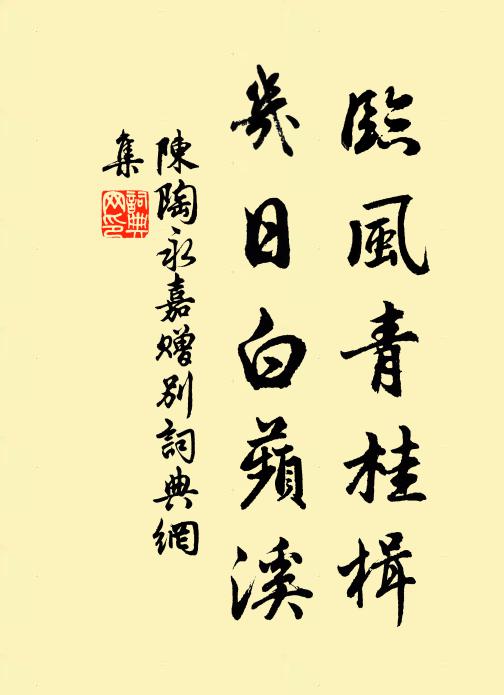 臨風青桂楫
幾日白蘋溪
陳陶永嘉贈別詞典網
集
詞典
網印